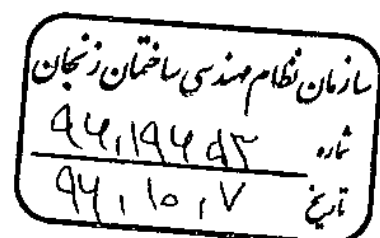 سازمان نظام مهندسی ساختمان زنجان
شماره ۹۶,۱۹۶۵۳
تاریخ ۹۶,۱۰,۷